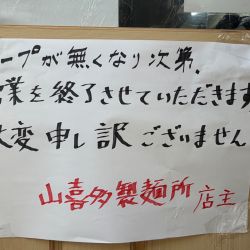 ープが無くなり次第、
業を終了させていただきます
大変申し訳ございません
山喜多製麺所 店主